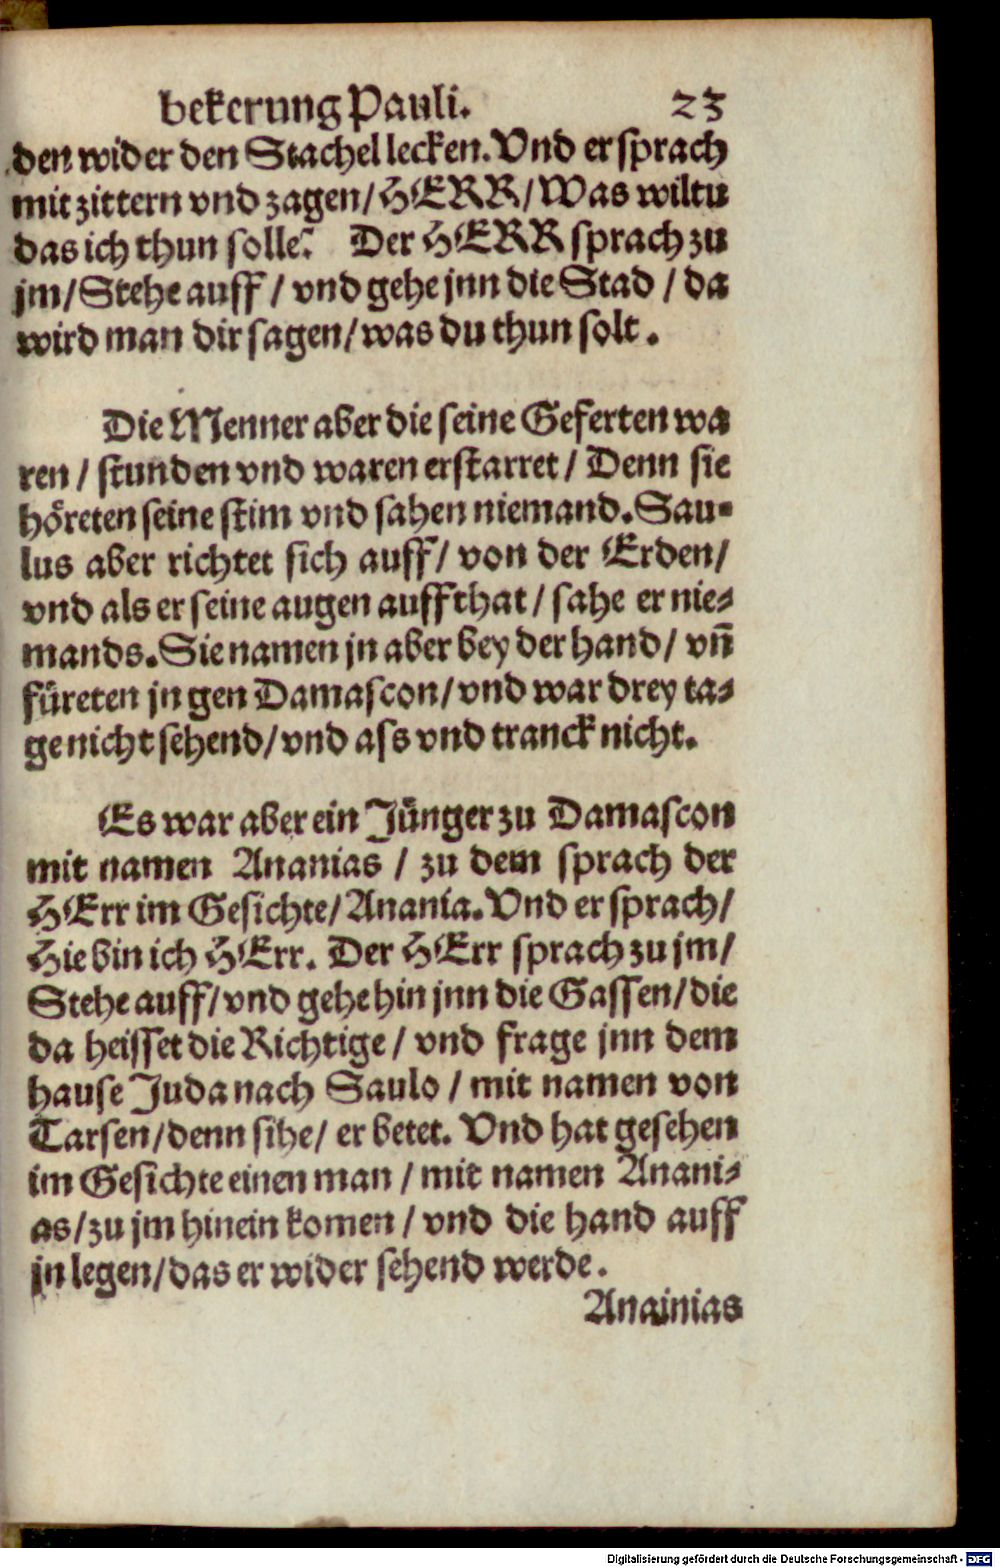 bekerung Pauli. 23
den wider den Stachel lecken. Vnd er sprach
mit zittern vnd zagen/ HERR/ Was wiltu
das ich thun solle? Der HERR sprach zu
jm/ Stehe auff / vnd gehe jnn die Stad / da
wird man dir sagen/ was du thun solt .
Die Menner aber die seine Geferten wa
ren / stunden vnd waren erstarret / Denn sie
höreten seine stim vnd sahen niemand. Sau-
lus aber richtet sich auff/ von der Erden/
vnd als er seine augen auffthat / sahe er nie-
mands. Sie namen jn aber bey der hand/ vñ
füreten jn gen Damascon/ vnd war drey ta-
ge nicht sehend/ vnd ass vnd tranck nicht.
Es war aber ein Jünger zu Damascon
mit namen Ananias / zu dem sprach der
HErr im Gesichte/ Anania. Vnd er sprach/
Hie bin ich HErr. Der HErr sprach zu jm/
Stehe auff/ vnd gehe hin jnn die Gassen/ die
da heisset die Richtige / vnd frage jnn dem
hause Juda nach Saulo / mit namen von
Tarsen/ denn sihe/ er betet. Vnd hat gesehen
im Gesichte einen man / mit namen Anani-
as/ zu jm hinein komen / vnd die hand auff
jn legen/ das er wider sehend werde.
Anainias
Digitalisierung gefördert durch die Deutsche Forschungsgemeinschaft - DFG